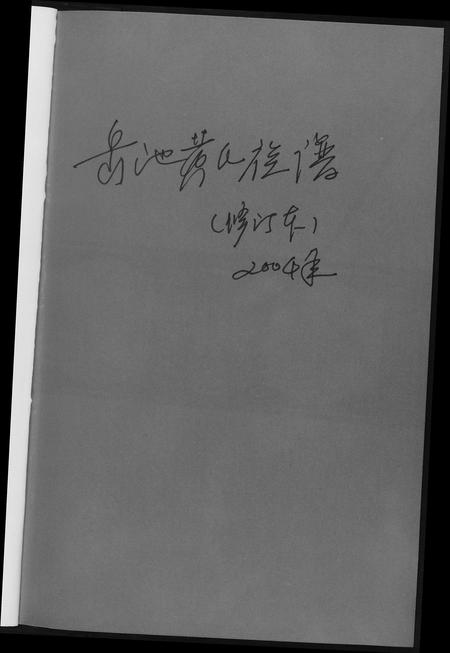 岳池黄氏族谱
(修订本)
2004年